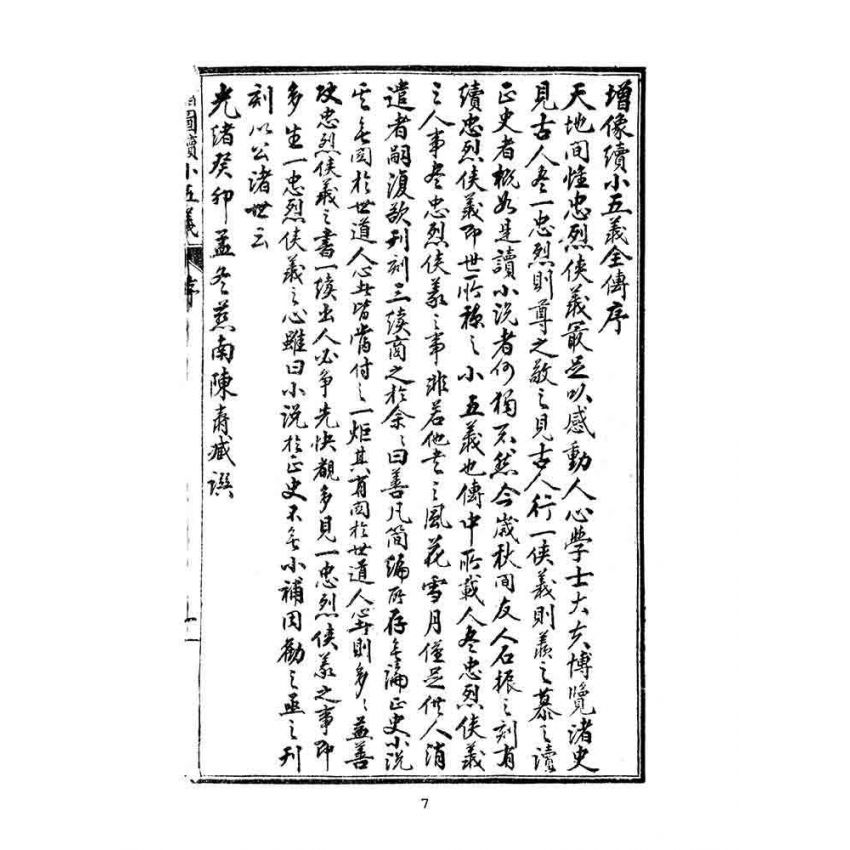 增像續小五義全傳序
天地間惟忠烈俠義最足以感動人心學士大夫博覽諸史
見古人尽一忠烈則尊之敬之見古人行一俠義則羨之慕之讀
正史者概如是讀小説者何獨不然今歲秋間友人石振之刻有
續忠烈俠義即世所称之小五義也傳中所載人尽忠烈俠義
之人事尽忠烈俠義之事非若他書之風花雪月僅足供人消
遣者嗣復欲刊刻三續商之於余余曰善凡简编所存無論正史小説
其無関於世道人心者皆當付之一炬其有関於世道人心者則多多益善
故忠烈俠義之書一續出人必争先快覩多見一忠烈俠義之事即
多生一忠烈俠義之心雖曰小説於正史不無小補因勸之亟之刊
刻以公諸世云
光緒癸卯孟冬燕南陳壽箴譔
圖續小五義
序
7